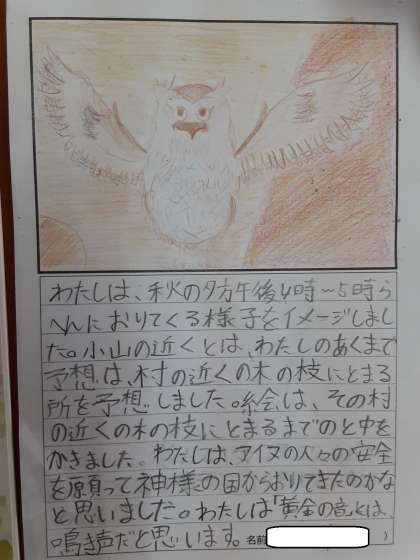 わたしは、秋の夕方午後4時〜5時ら
へんにおりてくる様子をイメージしまし
た。小山の近くとは、わたしのあくまで
予想は、村の近くの木の枝にとまる
所を予想しました。絵は、その村
の近くの木の枝にとまるまでのと中を
かきました。わたしは、アイヌの人々の安全
を願って神様の国からおりてきたのかな
と思いました。わたしは「黄金の音」とは、
鳴き声だと思います。 名前( )